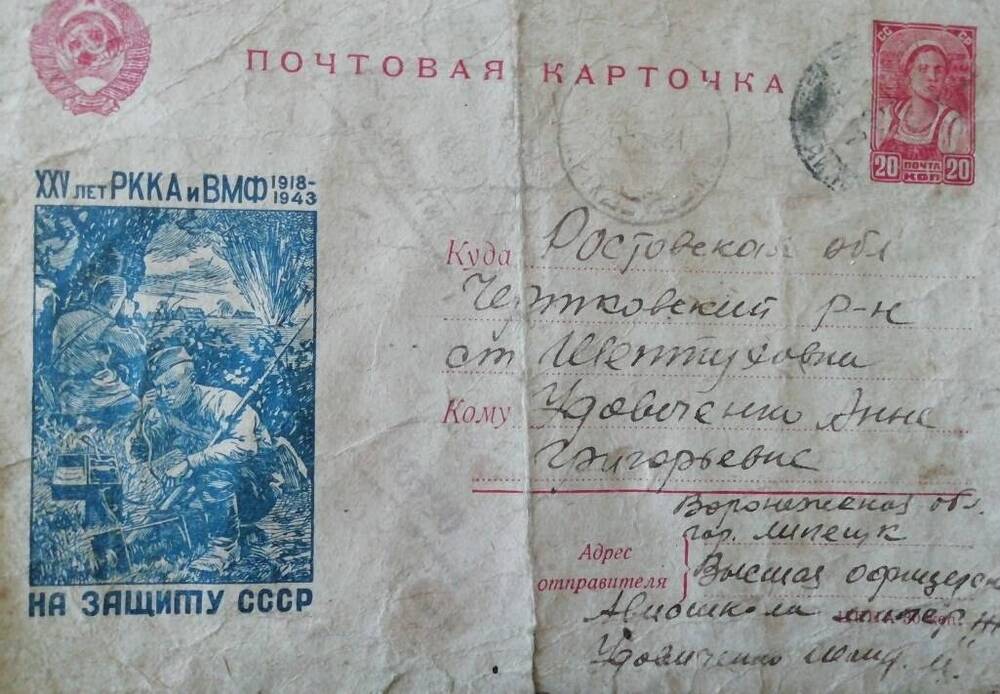 ПОЧТОВАЯ КАРТОЧКА
СС СР
20 ПОЧТА КОП 20
XXV ЛЕТ РККА и ВМФ 1918-1943
НА ЗАЩИТУ СССР
Куда Ростовская обл
Чертковский р-н
ст Шептуховка
Кому Удовиченко Анне
Григорьевне
Адрес отправителя
Воронежская обл.
гор. Липецк
Высшая офицерск
Авиашкола
Удовиченко